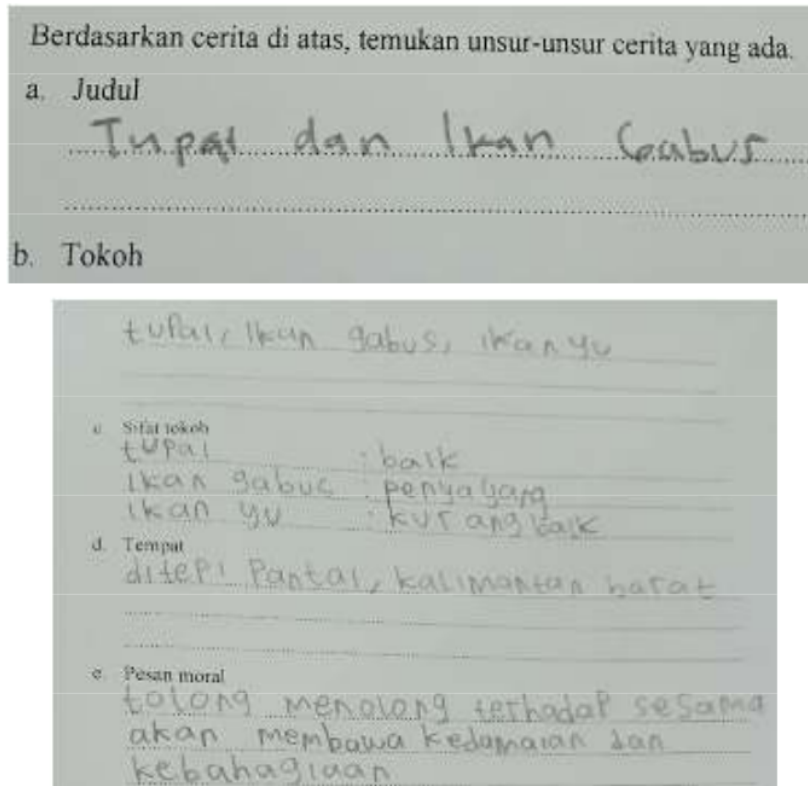 Berdasarkan cerita di atas, temukan unsur-unsur cerita yang ada.
a. Judul
Tupai dan Ikan Gabus
b. Tokoh
tupai, Ikan gabus, ikan yu
c. Sifat tokoh
tupai : baik
Ikan gabus : penyayang
ikan yu : kurang baik
d. Tempat
ditepi Pantai, kalimantan barat
e. Pesan moral
tolong menolong terhadap sesama
akan membawa kedamaian dan
kebahagiaan